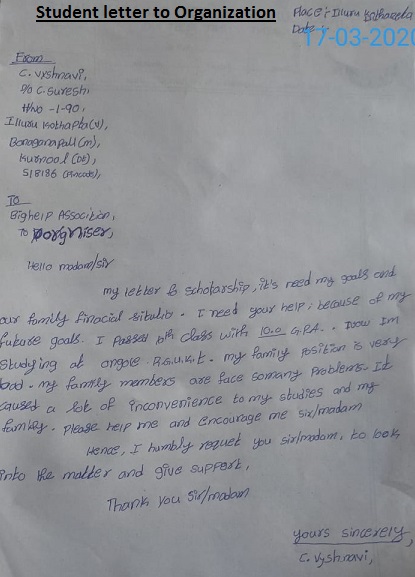 Student letter to Organization
Place: Illuru Kothapeta
Date:
17-03-2020
From
C. Vyshnavi,
D/o C. Suresh,
H/No -1-90,
Illuru Kothapeta(V),
Banaganapall(m),
Kurnool (Dt),
518186 (Pincode),
To
Bighelp Association,
To orgniser,
Hello madam/sir
my letter is scholarship, it's need my goals and
our family finacial situtio. I need your help; because of my
future goals. I passed 10th class with 10.0 G.P.A. Now Im
studying at ongole R.G.U.K.t. my family position is very
bad. my family members are face somany problems. It
caused a lot of inconvenience to my studies and my
family. please help me and encourage me sir/madam
Hence, I humbly requet you sir/madam, to look
into the matter and give support,
Thank you Sir/madam
yours sincerely,
C. Vyshnavi,